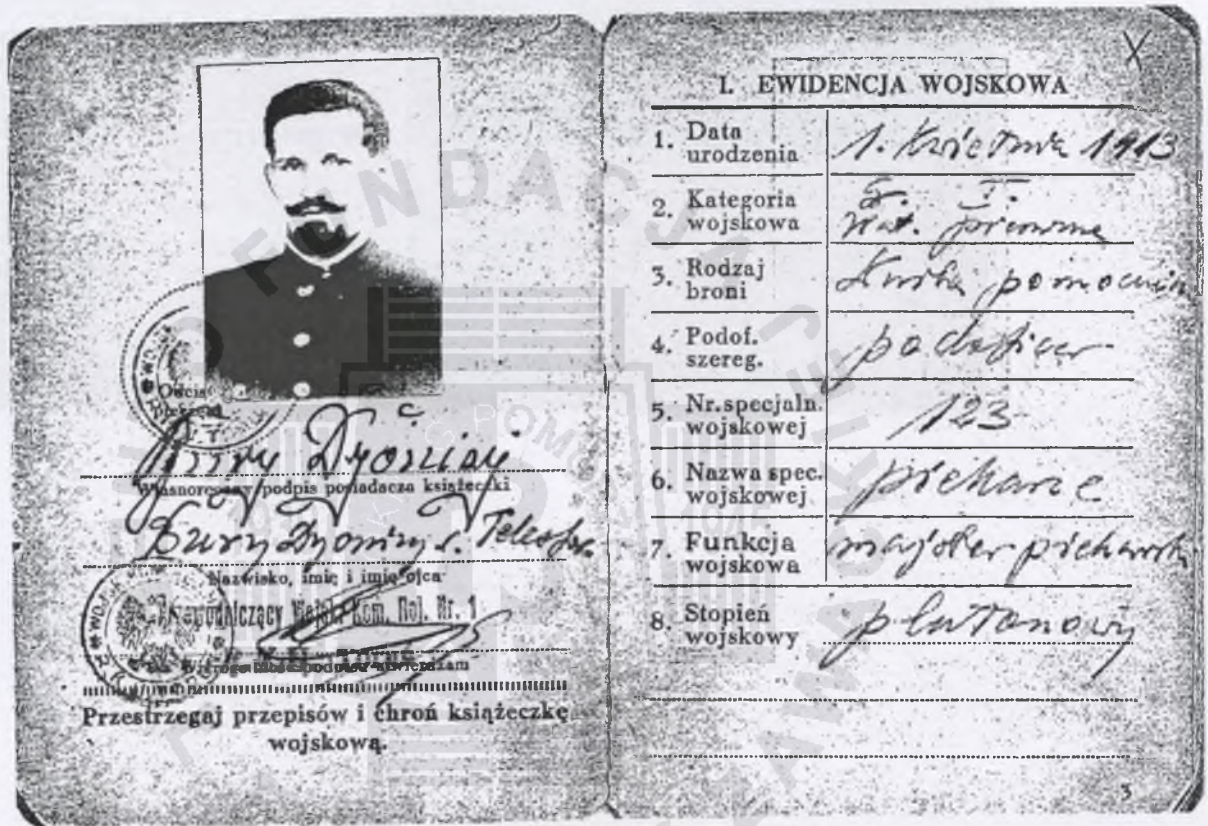 Bury Dyonizy
Własnoręczny podpis posiadacza książeczki
Bury Dyonizy s. Telesfor
Nazwisko, imię i imię ojca
Przewodniczący Wojsk. Kom. Rej. Nr. 1
Przestrzegaj przepisów i chroń książeczkę
wojskową.
X
I. EWIDENCJA WOJSKOWA
1. Data urodzenia 1. Kwietnia 1913
2. Kategoria wojskowa
3. Rodzaj broni służba pomocnicza
4. Podof. szereg. podoficer
5. Nr. specjaln. wojskowej 123
6. Nazwa spec. wojskowej piekarze
7. Funkcja wojskowa majster piekarski
8. Stopień wojskowy plutonowy
3